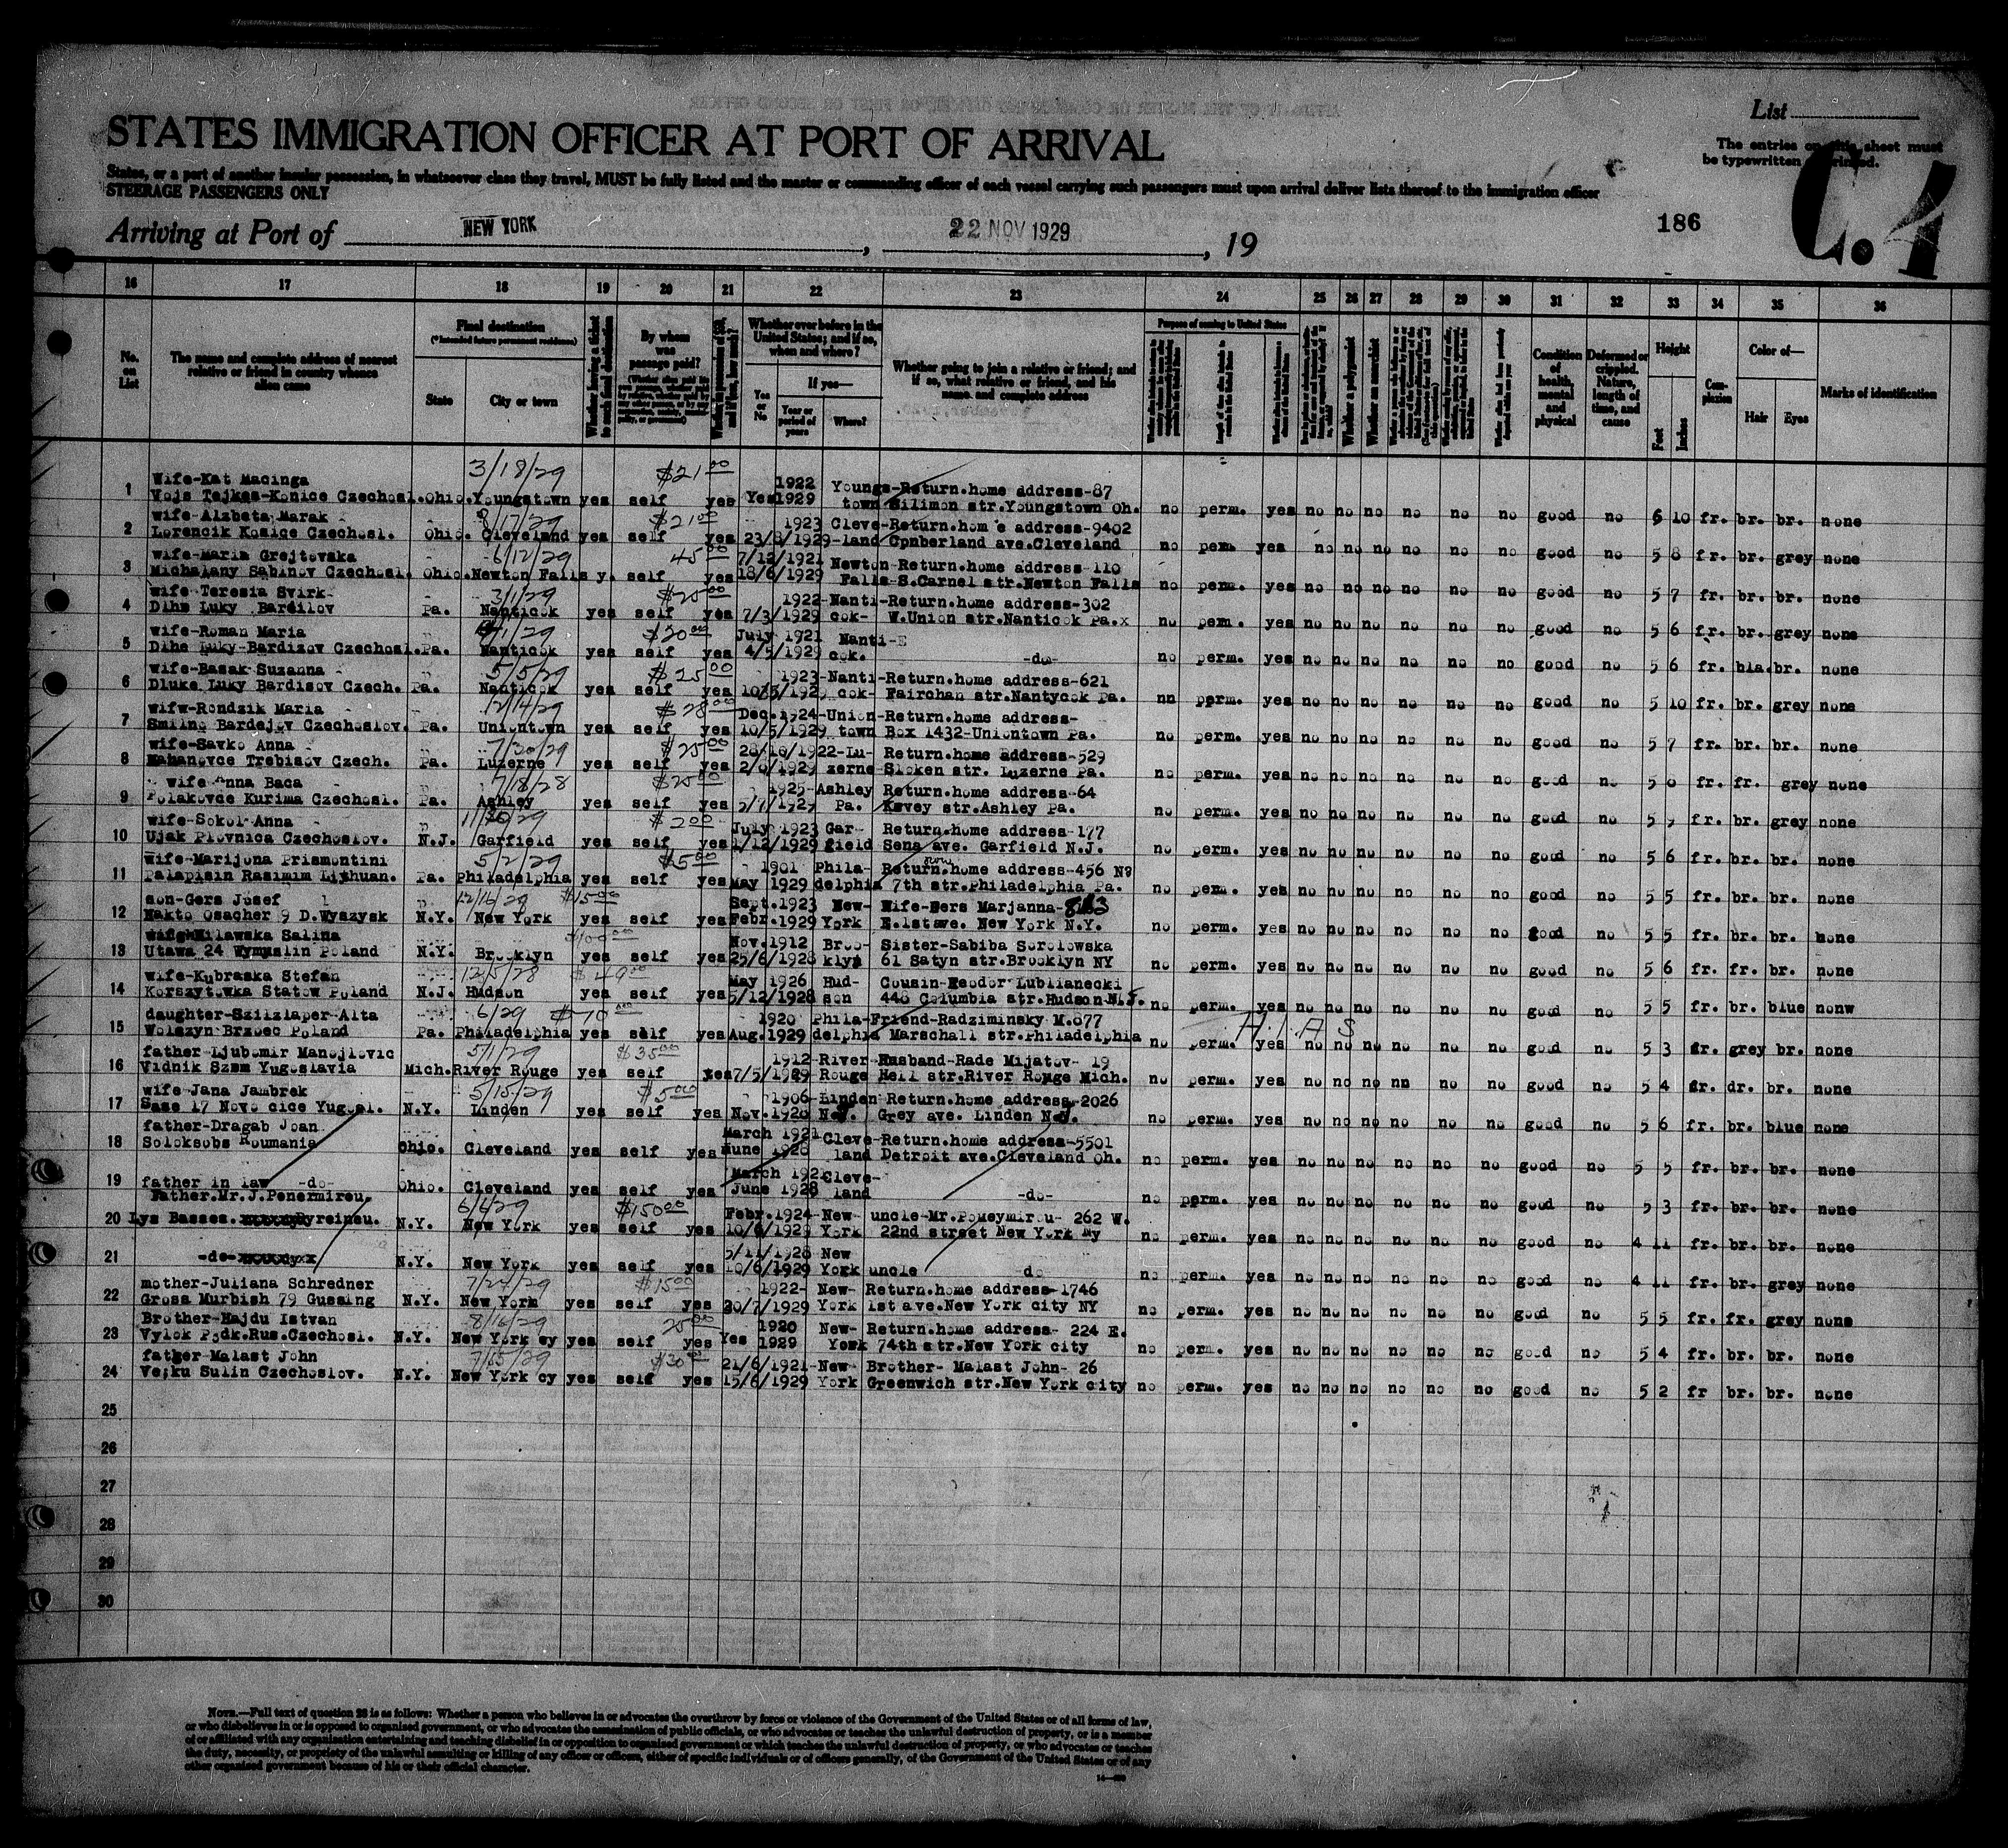 List
STATES IMMIGRATION OFFICER AT PORT OF ARRIVAL
The entries on this sheet must
be typewritten or printed.
States, or a part of another insular possession, in whatsoever class they travel, MUST be fully listed and the master or commanding officer of each vessel carrying such passengers must upon arrival deliver lists thereof to the immigration officer
STEERAGE PASSENGERS ONLY
C.4
186
Arriving at Port of NEW YORK , 22 NOV 1929 , 19
16 17 18 19 20 21 22 23 24 25 26 27 28 29 30 31 32 33 34 35 36
No. on List
The name and complete address of nearest relative or friend in country whence alien came
Final destination
(*Intended future permanent residence)
State City or town
By whom was passage paid?
Whether ever before in the United States; and if so, when and where?
Yes or No
If yes—
Year or period of years
Where?
Whether going to join a relative or friend; and if so, what relative or friend, and his name and complete address
Purpose of coming to United States
Whether a polygamist
Whether an anarchist
Condition of health, mental and physical
Deformed or crippled. Nature, length of time, and cause
Height
Feet Inches
Complexion
Color of—
Hair Eyes
Marks of identification
3/18/29 $21.00
Wife-Kat Macinga 1922 Youngs-Return.home address-87
1 Vojs Tejkes-Konice Czechosl. Ohio. Youngstown yes self yes Yes 1929 town Silimon str.Youngstown Oh. no perm. yes no no no no no no good no 6 10 fr. br. br. none
8/17/29 $21.00
wife-Alzbeta Marak 1923 Cleve-Return.home address-9402
2 Lorencik Kosice Czechosl. Ohio. Cleveland yes self yes 23/8/1929-land Cpnberland ave.Cleveland no perm. yes no no no no no no good no 5 8 fr. br. grey none
6/12/29 45.00
wife-Maria Grejtovska 7/12/1921 Newton-Return.home address-110
3 Michalany Sabinov Czechosl. Ohio. Newton Falls y. self yes 18/6/1929 Falls-S.Carnel str.Newton Falls no perm. yes no no no no no no good no 5 7 fr. br. br. none
3/1/29 $25.00
wife Teresia Svirk- 1922-Nanti-Return.home address-302
4 Dlhe Luky Bardilov Pa. Nanticok yes self yes 7/3/1929 cok- W.Union str.Nanticok Pa.x no perm. yes no no no no no no good no 5 6 fr. br. grey none
1/29 $20.00
wife-Roman Maria July 1921 Nanti-E
5 Dlhe Luky-Bardizov Czechosl. Pa. Nanticok yes self yes 4/5/1929 cok. -do- no perm. yes no no no no no no good no 5 6 fr. bla. br. none
5/5/29 $25.00
wife-Basak Suzanna 1923-Nanti-Return.home address-621
6 Dluke Luky Bardisov Czech. Pa. Nanticok yes self yes 10/5/1929 cok- Fairchan str.Nantycok Pa. nn perm. yes no no no no no no good no 5 10 fr. br. grey none
12/14/29 $28.00
wifw-Rondzik Maria Dec.1924-Union-Return.home address-
7 Smilno Bardejov Czechoslov. Pa. Uniontown yes self yes 10/5/1929 town Box 1432-Uniontown Pa. no perm. yes no no no no no no good no 5 7 fr. br. br. none
7/30/29 $25.00
wife-Savko Anna 28/10/1922-Lu- Return.home address-529
8 Hahanovce Trebisov Czech. Pa. Luzerne yes self yes 2/8/1929 zerne-Sloken str. Luzerne Pa. no perm. yes no no no no no no good no 5 8 fr. fr. grey none
7/18/28 $25.00
wife Anna Baca 1925-Ashley Return.home address-64
9 Polakovce Kurima Czechosl. Pa. Ashley yes self yes 5/7/1929 Pa. Kavey str.Ashley Pa. no perm. yes no no no no no no good no 5 7 fr. br. grey none
$2.00
wife-Sokol Anna July 1923 Gar- Return.home address-177
10 Ujak Plovnica Czechoslov. N.J. Garfield yes self yes 1/12/1929 field Sena ave. Garfield N.J. no perm. yes no no no no no no good no 5 6 fr. br. br. none
5/2/29 $5.00
wife-Marijona Prismontini 1901 Phila- Return.home address-456 No
11 Palapisin Rasimim Lithuan. Pa. Philadelphia yes self yes May 1929 delphia 7th str.Philadelphia Pa. no perm. yes no no no no no no good no 5 5 fr. br. br. none
12/16/29 $15.00
son-Gers Josef Sept.1923 New- Wife-Gers Marjanna-
12 Nakto Osacher 9 D.Wyszysk N.Y. New York yes self yes Febr.1929 York E.1stave. New York N.Y. no perm. yes no no no no no no good no 5 5 fr. br. br. none
$100.00
Milawska Salina Nov.1912 Broo- Sister-Sabiba Sorolowska
13 Utawa 24 Wymyslin Poland N.Y. Brooklyn yes self yes 25/6/1928 klyn 61 Satyn str.Brooklyn NY no perm. yes no no no no no no good no 5 6 fr. fr. br. none
12/5/28 $49.00
wife-Kubraska Stefan May 1926 Hud- Cousin-Feodor Lublianecki
14 Korszytowka Statow Poland N.J. Hudson yes self yes 5/12/1928 son 448 Columbia str.Hudson N.J. no perm. yes no no no no no no good no 5 5 fr. br. blue nonw
6/29 $70.00
daughter-Szilzlaper-Alta 1920 Phila-Friend-Radziminsky M.877 H.I.A.S
15 Wolszyn Brzoec Poland Pa. Philadelphia yes self yes Aug.1929 delphia Marschall str.Philadelphia no perm. yes no no no no no no good no 5 3 fr. grey br. none
5/1/29 $35.00
father-Ljubomir Manojlovic 1912-River-Husband-Rade Mijatov- 19
16 Vidnik Szem Yugoslavia Mich. River Rouge yes self yes 7/5/1929 Rouge Hell str.River Rouge Mich. no perm. yes no no no nn no no good no 5 4 fr. dr. br. none
5/15/29 $5.00
wife-Jana Jambrek 1906-Linden Return.home address-2026
17 Sase 17 Novo cice Yugosl. N.Y. Linden yes self yes Nov.1928 N.J. Grey ave. Linden N.J. no perm. yes no no no no no no good no 5 6 fr. br. blue none
father-Dragab Joan March 1921 Cleve-Return.home address-5501
18 Soloksobs Roumania Ohio. Cleveland yes self yes June 1928 land Detroit ave.Cleveland Oh. no perm. yes no no no no no no good no 5 5 fr. br. br. none
March 192 Cleve-
19 father in law -do- Ohio. Cleveland yes self yes June 1928 land -do- no perm. yes no no no no no no good no 5 3 fr. br. br. none
6/6/29 $150.00
Father.Mr.J.Penermirou. Febr.1924-New- uncle-Mr.Pomeymirou- 262 W.
20 Lys Basses. Pyreineu. N.Y. New York yes self yes 10/6/1929 York 22nd street New York Ny no perm. yes no no no no no no good no 4 11 fr. br. br. none
5/11/1928 New
21 -do- N.Y. New York yes self yes 10/6/1929 York uncle do no perm. yes no no no no no no good no 4 11 fr. br. grey none
7/24/29 $15.00
mother-Juliana Schredner 1922- New- Return.home address-1746
22 Gross Murbish 79 Gussing N.Y. New York yes self yes 20/7/1929 York 1st ave.New York city NY no perm. yes no no no no no no good no 5 5 fr. fr. grey none
8/16/29 25.00
Brother-Hajdu Istvan 1920 New- Return.home address- 224 E.
23 Vylok Podk.Rus.Czechosl. N.Y. New York cy yes self yes Yes 1929 York 74th str.New York city no perm. yes no no no no no no good no 5 4 fr. br. br. none
$30.00
father-Malast John 21/6/1921-New- Brother- Malast John- 26
24 Velku Sulin Czechoslov. N.Y. New York cy yes self yes 15/6/1929 York Greenwich str.New York city no perm. yes no no no no no no good no 5 2 fr br. br. none
25
26
27
28
29
30
NOTE.—Full text of question 28 is as follows: Whether a person who believes in or advocates the overthrow by force or violence of the Government of the United States or of all forms of law,
or who disbelieves in or is opposed to organized government, or who advocates the assassination of public officials, or who advocates or teaches the unlawful destruction of property, or is a member
of or affiliated with any organization entertaining and teaching disbelief in or opposition to organized government or which teaches the unlawful destruction of property, or who advocates or teaches
the duty, necessity, or propriety of the unlawful assaulting or killing of any officer or officers, either of specific individuals or of officers generally, of the Government of the United States or of any
other organized government because of his or their official character.